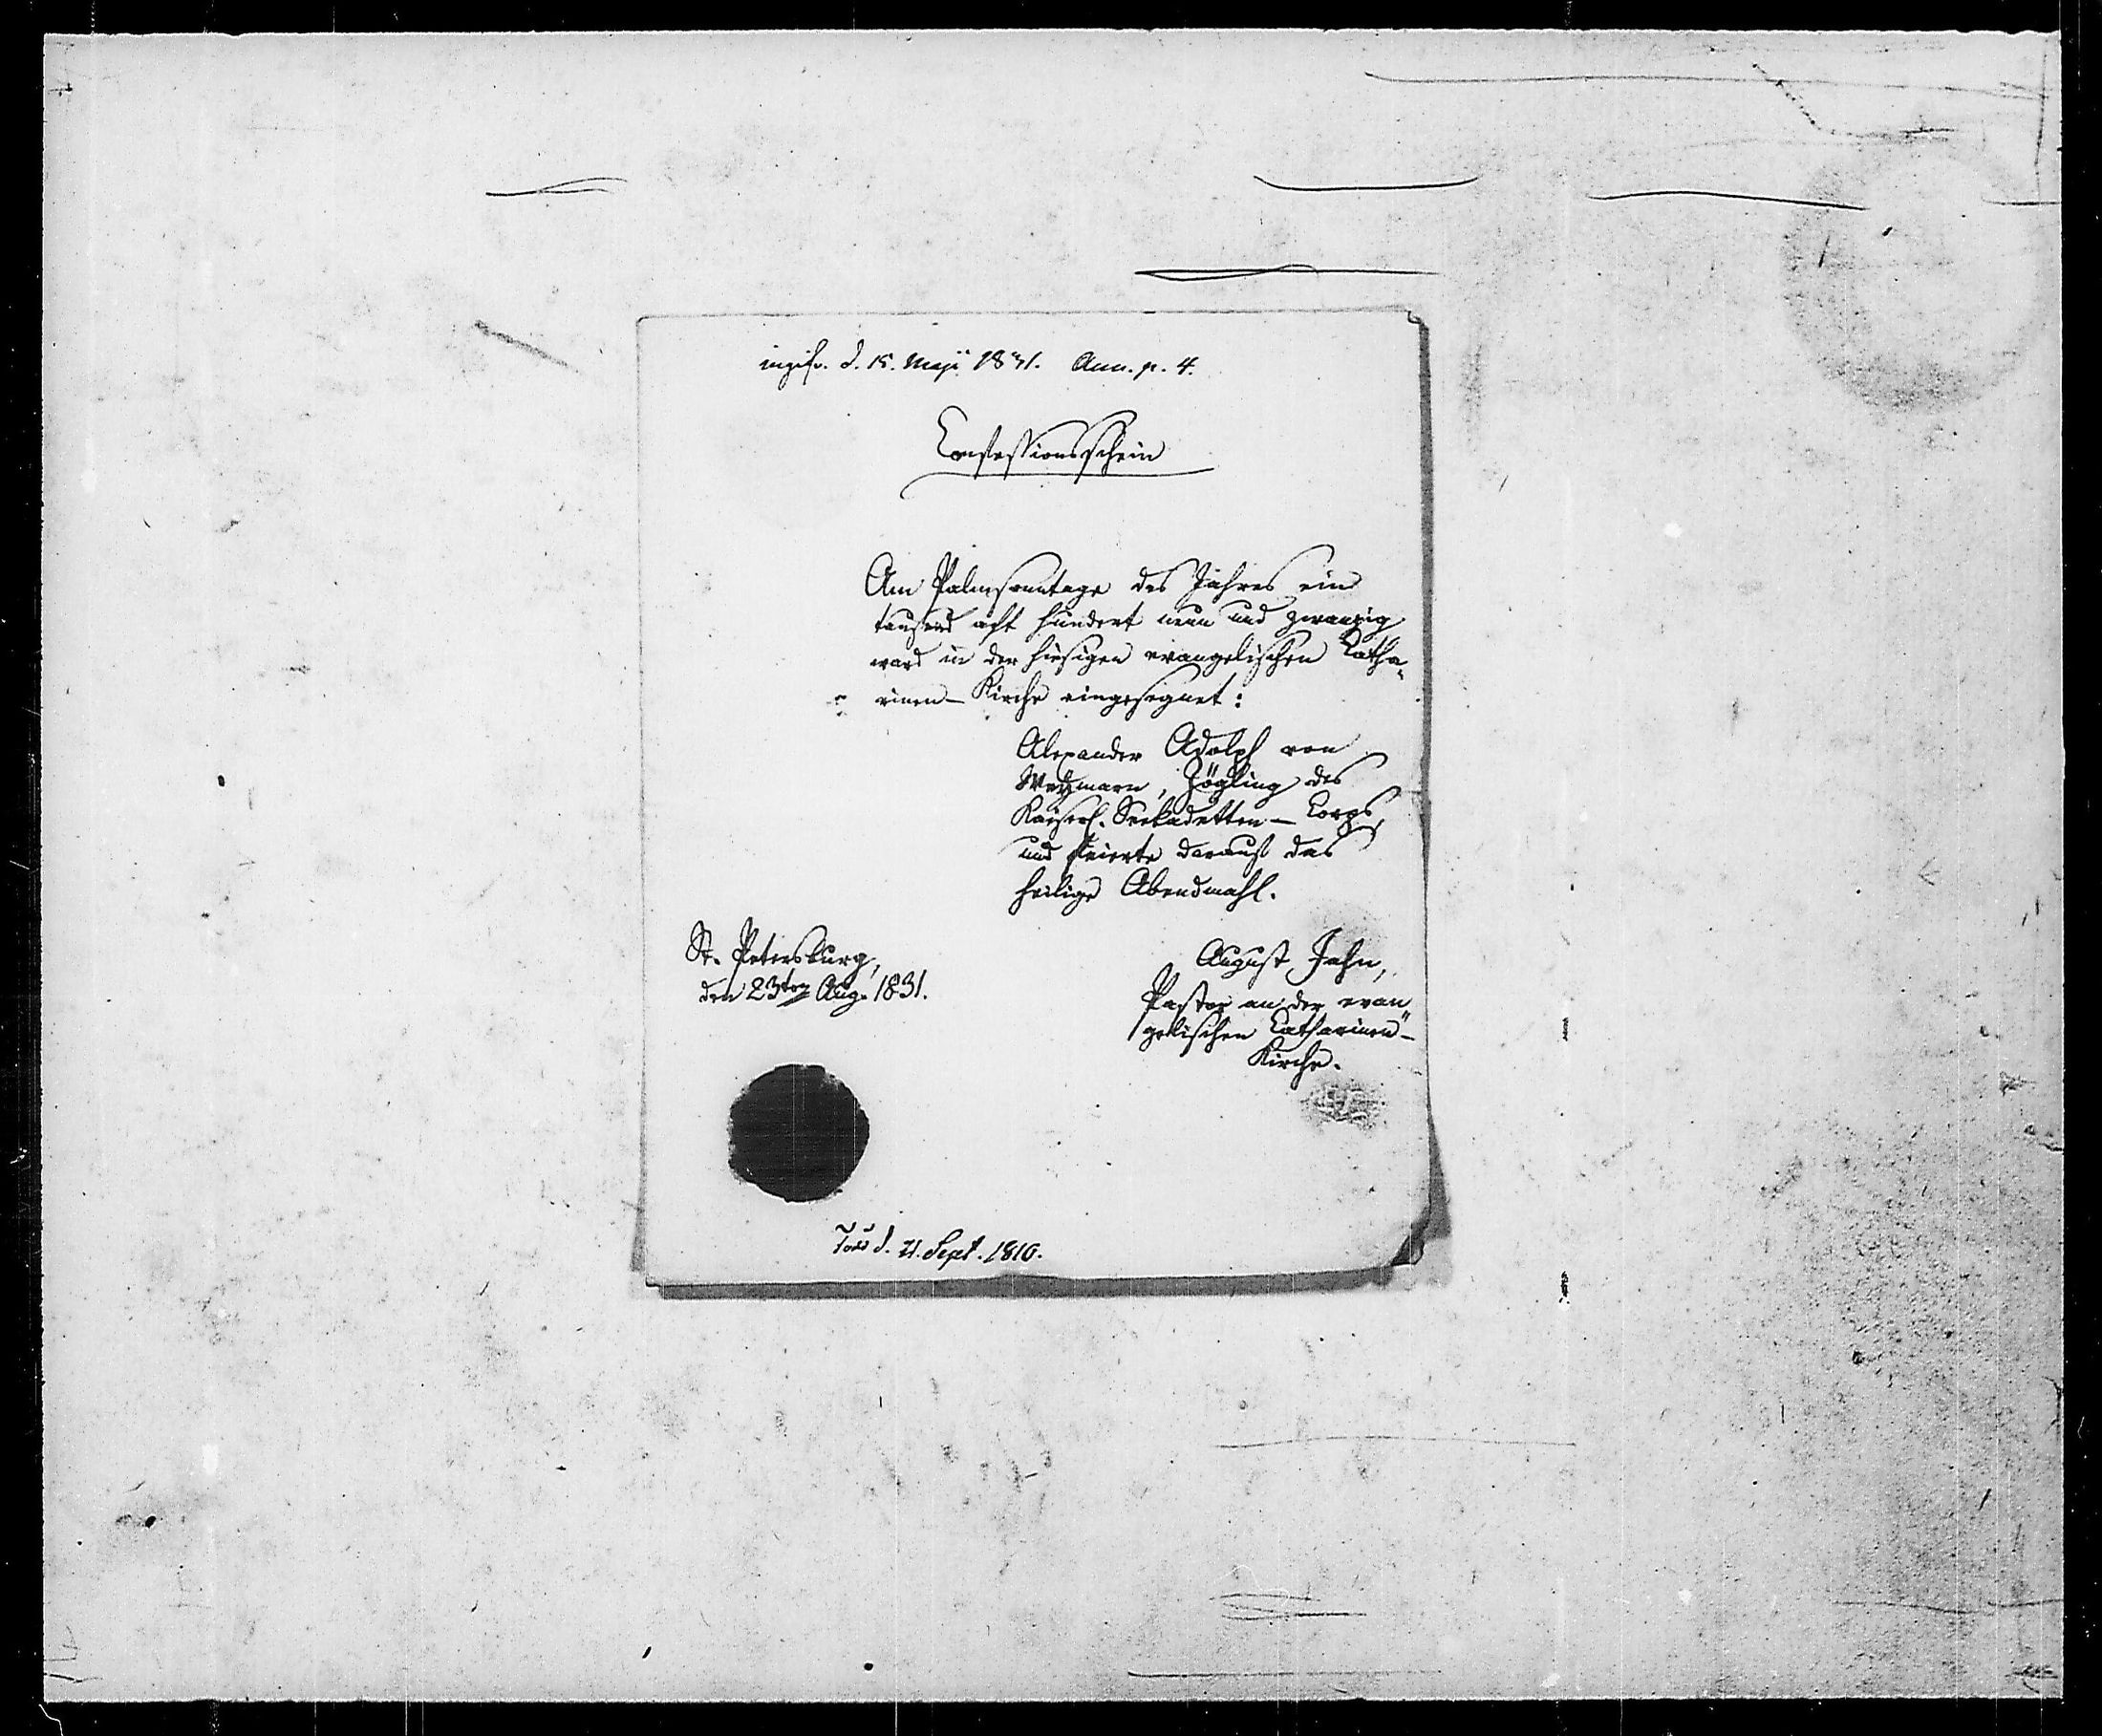 d. 15. Maji 1831. Ann. p. 4.
Confessionsschein
Am Palmsonntage des Jahres ein
tausend acht hundert neun und zwanzig
ward in der hiesigen evangelischen Catha-
rinen-Kirche eingesegnet:
Alexander Adolph von
Weymarn, Zögling des
Kaiserl. Seekadetten-Corps,
und feierte darauf das
heilige Abendmahl.
St. Petersburg,
den 23ten Aug. 1831.
August Jahn,
Pastor an der evan-
gelischen Catharinen-
Kirche.
d. 21. Sept. 1810.